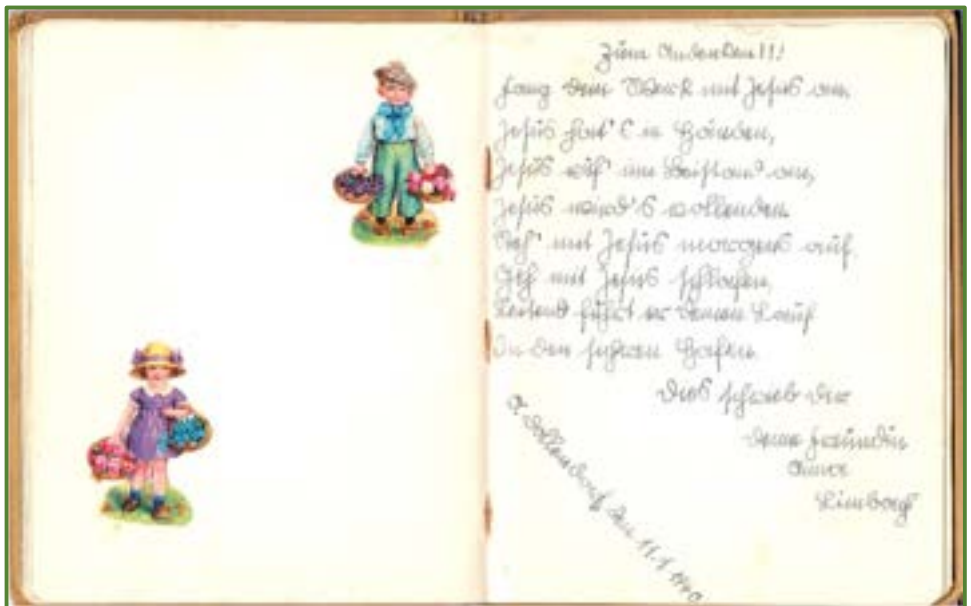 Zum Andenken!!!
Fang dein Werk mit Jesus an,
Jesus hat's in Händen,
Jesus ruf' um Beistand an,
Jesus wird's vollenden.
Steh' mit Jesus morgens auf,
Geh mit Jesus schlafen,
Leitend führt er deinen Lauf
In den sichren Hafen.
Dies schrieb dir
deine Freundin
Anna
Limbach
O. Dollendorf, den 11.1.1940